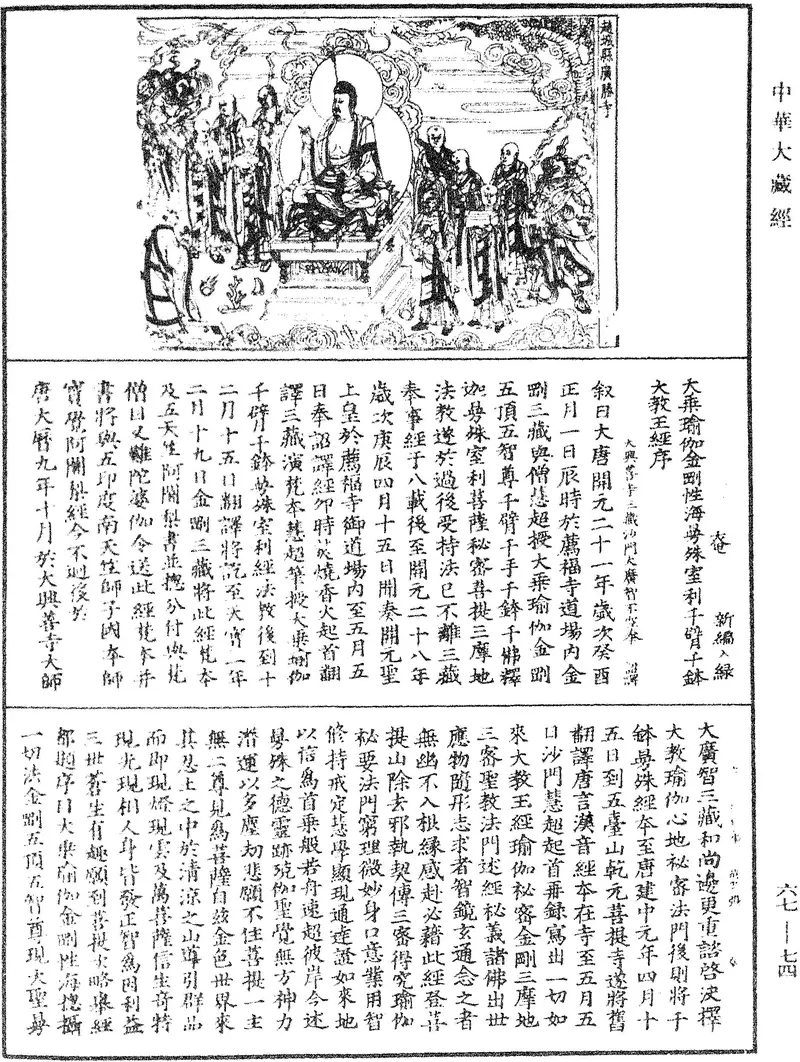 中華大藏經
六七—七四
趙城縣廣勝寺
大乘瑜伽金剛性海曼殊室利千臂千鉢
大教王經序
新編入録
大興善寺三藏沙門大廣智不空奉 詔譯
叙曰大唐開元二十一年歲次癸酉
正月一日辰時於薦福寺道場內金
剛三藏與僧慧超授大乘瑜伽金剛
五頂五智尊千臂千手千鉢千佛釋
迦曼殊室利菩薩秘密菩提三摩地
法教遂於過後受持法已不離三藏
奉事經于八載後至開元二十八年
歲次庚辰四月十五日聞奏開元聖
上皇於薦福寺御道場內至五月五
日奉詔譯經卯時焚燒香火起首翻
譯三藏演梵本慧超筆授大乘瑜伽
千臂千鉢曼殊室利經法教後到十
二月十五日翻譯將訖至天寶一年
二月十九日金剛三藏將此經梵本
及五天竺阿闍梨書並摠分付與梵
僧目叉難陀婆伽令送此經梵本并
書將與五印度南天竺師子國本師
寶覺阿闍梨經今不迴後於
唐大曆九年十月於大興善寺大師
大廣智三藏和尚邊更重諮啓決擇
大教瑜伽心地秘密法門後則將千
鉢曼殊經本至唐建中元年四月十
五日到五臺山乾元菩提寺遂將舊
翻譯唐言漢音經本在寺至五月五
日沙門慧超起首再録寫出一切如
來大教王經瑜伽秘密金剛三摩地
三密聖教法門述經秘義諸佛出世
應物隨形志求者智鏡玄通念之者
無幽不入根緣感赴必藉此經登菩
提山除去邪執契傳三密得究瑜伽
秘要法門窮理微妙身口意業用智
修持戒定慧學顯現通達證如來地
以信為首乘般若舟速超彼岸今述
曼殊之德靈跡克伽聖覺無方神力
潛運以多塵劫悲願不住菩提一主
無二尊見為菩薩自兹金色世界來
其忍土之中於清涼之山導引群品
而即現燈現雲及萬菩薩信生奇特
現光現相人身皆發正智為因利益
三世蒼生有趣願到菩提次略舉經
都題序目大乘瑜伽金剛性海摠攝
一切法金剛五頂五智尊現大聖曼